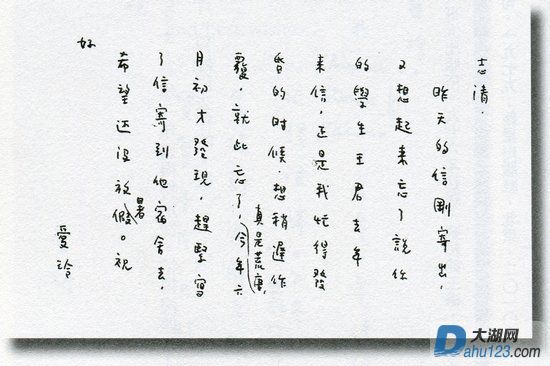 志清，
昨天的信剛寄出，
又想起来忘了說你
的學生王君去年
来信，正是我忙得發
昏的时候，想稍遲作
覆，就此忘了，真是荒唐，今年六
月初才發現，趕緊寫
了信寄到他宿舍去，
希望还没放暑假。祝
好
愛玲
大湖网
Dahu123.com